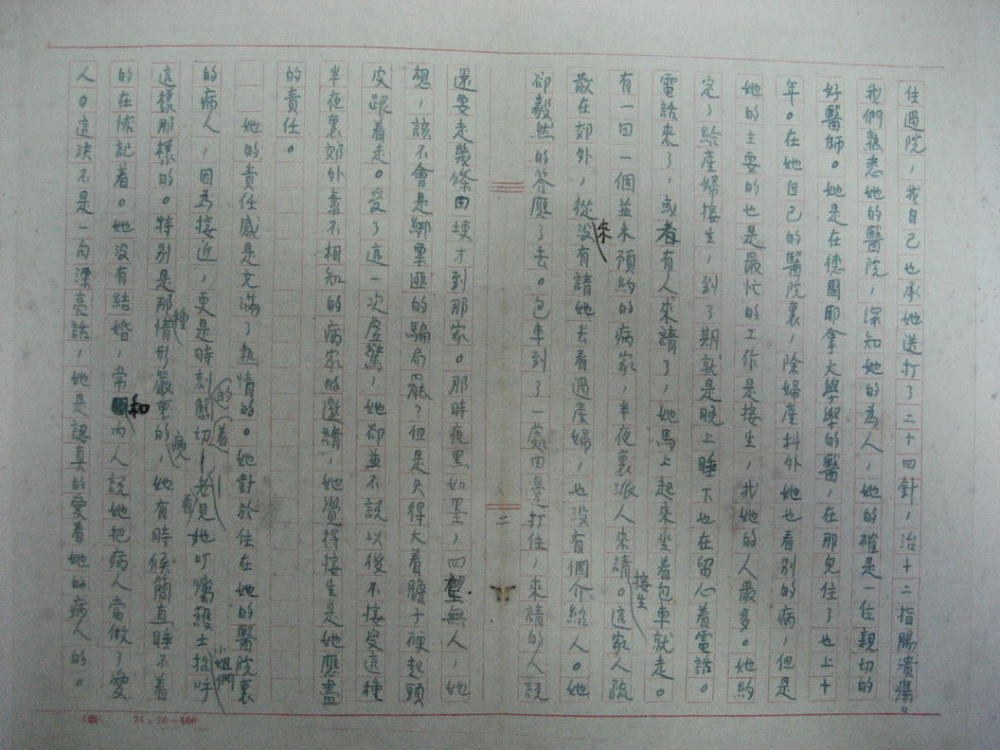 住過院，我自己也承她送打了二十四針，治十二指腸潰瘍。
我們熟悉她的醫院，深知她的為人，她的確是一位親切的
好醫師。她是在德國耶拿大學學的醫，在那兒住了也上十
年。在她自己的醫院裏，除婦產科外她也看別的病，但是
她的主要的也是最忙的工作是接生，找她的人最多。她約
定了給產婦接生，到了期就是晚上睡下也在留心着電話。
電話來了，或者有人來請了，她馬上起來坐着包車就走。
有一回一個並未預約的病家，半夜裏派人來請。這家人疏
散在郊外，從來沒有請她去看過產婦，也沒有個介紹人。她
卻毅然的答應了去。包車到了一處田邊打住，來請的人說
還要走幾條田埂才到那家。那時夜黑如墨，四望無人，她
想，該不會是綁票匪的騙局罷？但是只得大着膽子硬起頭
皮跟着走。受了這一次虛驚，她卻並不說以後不接受這種
半夜裏郊外素不相知的病家的邀請，她覺得接生是她應盡
的責任。
她的責任感是充滿了熱情的。她對於住在她的醫院裏
的病人，因為接近，更是時刻關切的。老看見她叮囑護士小姐們招呼
這樣那樣的。特別是那種情形嚴重的病，她有時候簡直睡不着
的在惦記着。她沒有結婚，常和內人說她把病人當做了愛
人。這決不是一句漂亮話，她是認真的愛着她的病人的。
二
25×20=500